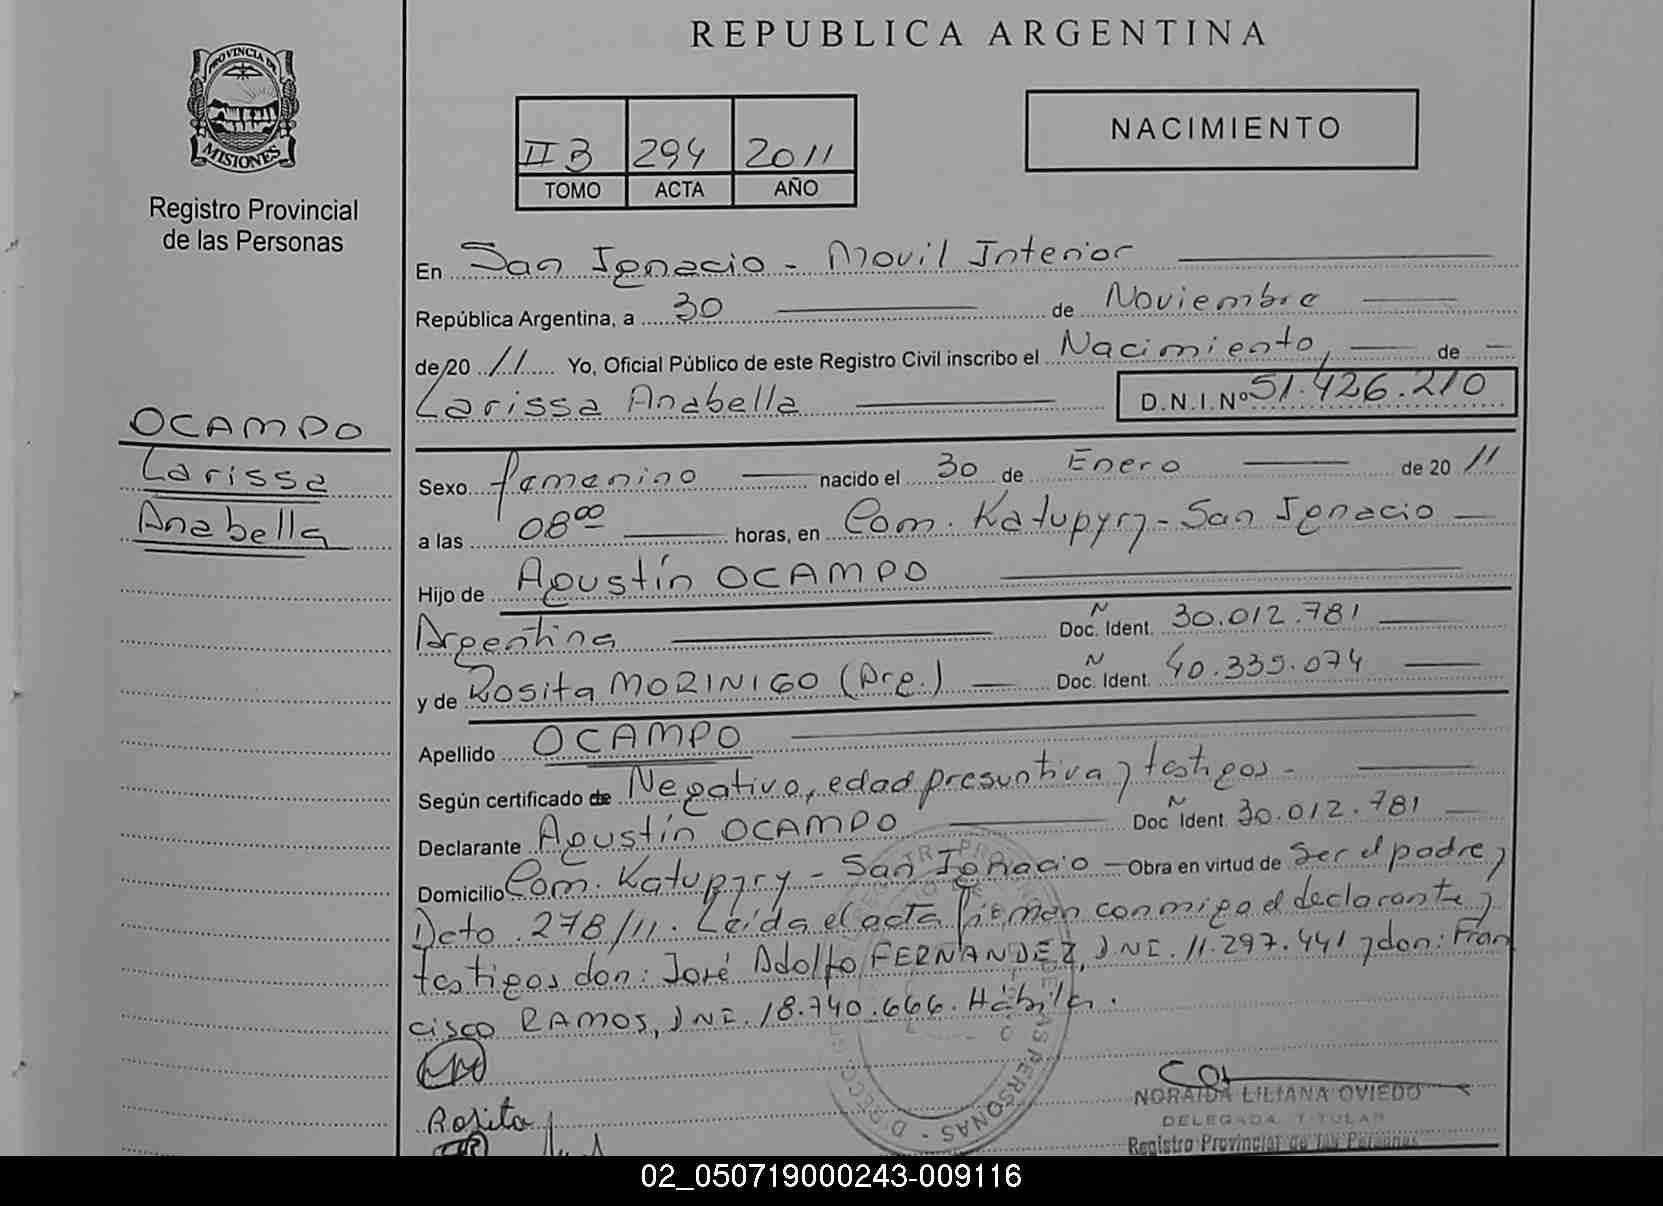 REPUBLICA ARGENTINA
PROVINCIA DE
MISIONES
Registro Provincial
de las Personas
II B 294 2011
TOMO ACTA AÑO
NACIMIENTO
En San Ignacio - Movil Interior
República Argentina, a 30 de Noviembre
de 20 11 Yo, Oficial Público de este Registro Civil inscribo el Nacimiento, de
Larissa Anabella D.N.I.Nº 51.426.210
OCAMPO
Larissa
Anabella
Sexo femenino nacido el 30 de Enero de 20 11
a las 08 00 horas, en Com. Katupyry - San Ignacio
Hijo de Agustín OCAMPO
Argentina Doc. Ident. 30.012.781
y de Rosita MORINIGO (Arg.) Doc. Ident. 40.335.074
Apellido OCAMPO
Según certificado de Negativo, edad presuntiva y testigos -
Declarante Agustín OCAMPO Doc Ident. 30.012.781
Domicilio Com. Katupyry - San Ignacio - Obra en virtud de Ser el padre y
Dcto 278/11. Leída el acta firman conmigo el declarante y
testigos don: José Adolfo FERNANDEZ, DNI. 11.297.441 y don: Fran
cisco RAMOS, DNI. 18.740.666. Hábiles.
Rosita
NORAIDA LILIANA OVIEDO
DELEGADA TITULAR
Registro Provincial de las Personas
02_050719000243-009116